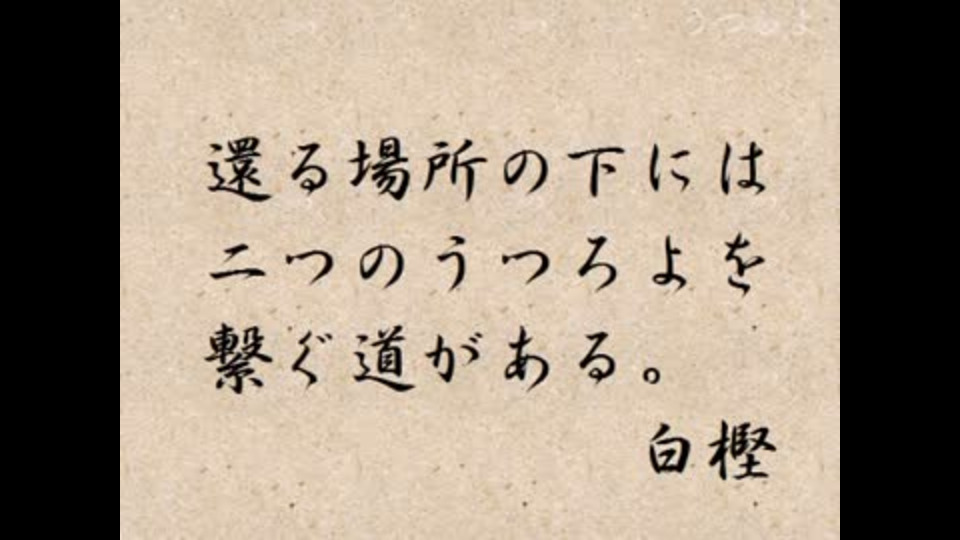 還る場所の下には
二つのうつろよを
繋ぐ道がある。
白樫